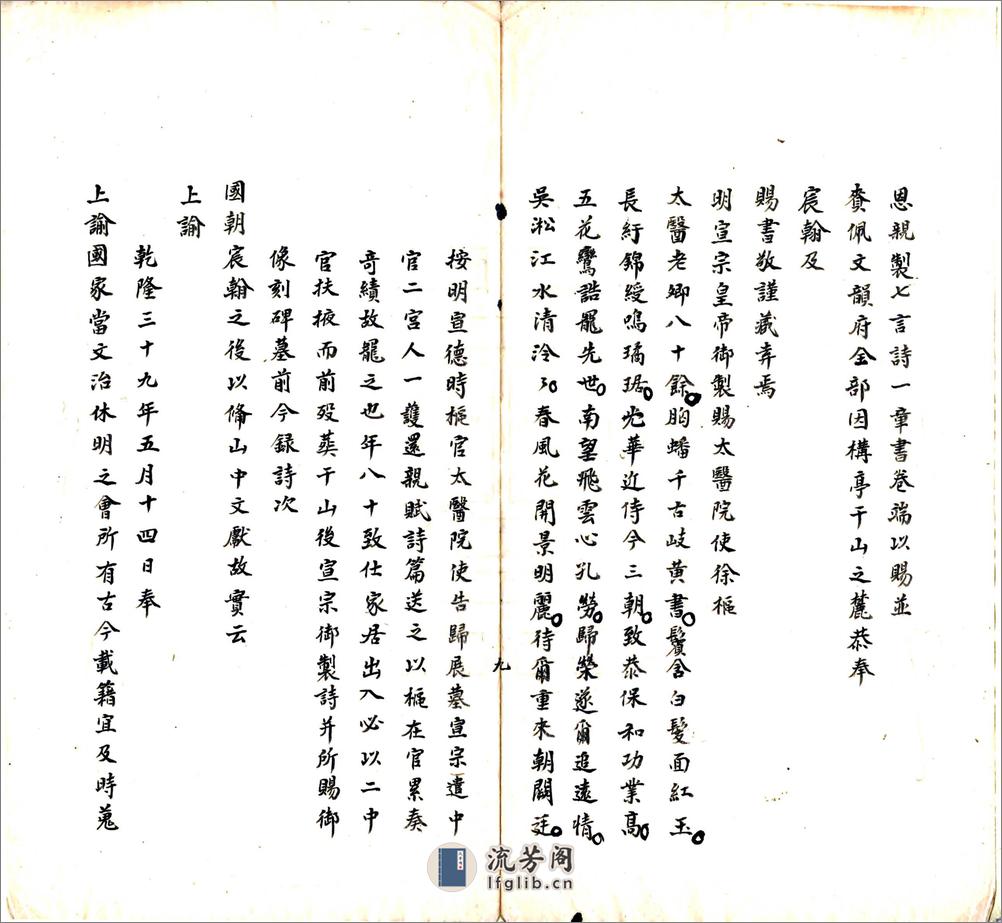 恩親製七言詩一章書卷端以賜並
賚佩文韻府全部因構亭干山之麓恭奉
宸翰及
賜書敬謹藏弆焉
明宣宗皇帝御製賜太醫院使徐樞
太醫老卿八十餘胸蟠千古岐黄書鬢含白髮面紅玉
長紆錦綬鳴璚琚光華近侍今三朝致恭保和功業高
五花鸞誥罷先世南望飛雲心孔勞歸榮遂爾追遠情
吳淞江水清泠〻春風花開景明麗待爾重來朝闕廷
九
按明宣德時樞官太醫院使告歸展墓宣宗遣中
官二宮人一護還親賦詩篇送之以樞在官累奏
奇績故寵之也年八十致仕家居出入必以二中
官扶掖而前殁葬干山後宣宗御製詩并所賜御
像刻碑墓前今録詩次
國朝宸翰之後以備山中文獻故實云
上諭
乾隆三十九年五月十四日奉
上諭國家當文治休明之會所有古今載籍宜及時蒐
流芳阁
lfglib.cn